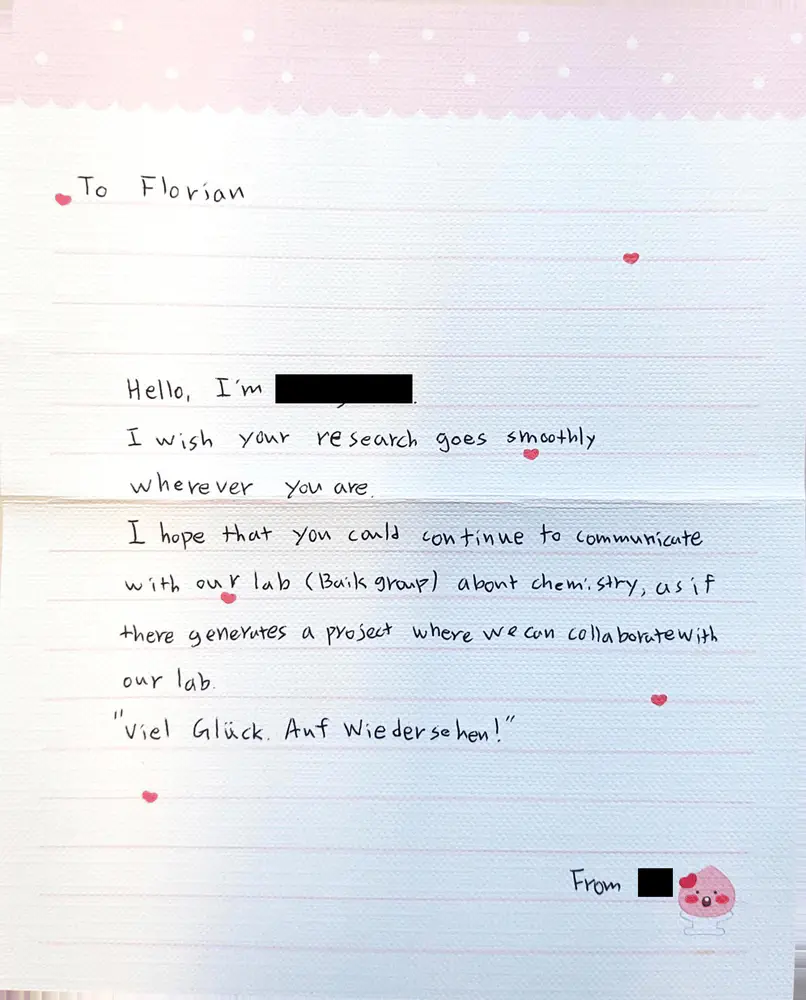 To Florian
Hello, I'm
I wish your research goes smoothly
wherever you are.
I hope that you could continue to communicate
with our lab (Baik group) about chemistry, as if
there generates a project where we can collaborate with
our lab.
"Viel Glück. Auf Wiedersehen!"
From